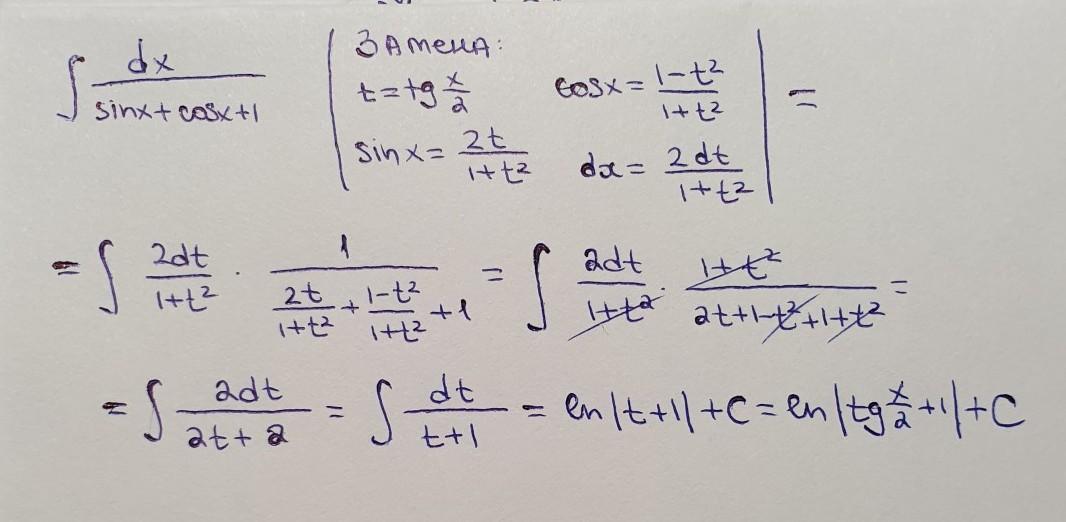 ∫ dx/(sinx+cosx+1) | Замена: t=tg x/2 cosx= (1-t²)/(1+t²) sinx= 2t/(1+t²) dx= 2dt/(1+t²) | =
= ∫ 2dt/(1+t²) · 1/(2t/(1+t²) + (1-t²)/(1+t²) +1) = ∫ 2dt/(1+t²) · (1+t²)/(2t+1-t²+1+t²) =
= ∫ 2dt/(2t+2) = ∫ dt/(t+1) = ln|t+1|+C = ln|tg x/2 +1|+C